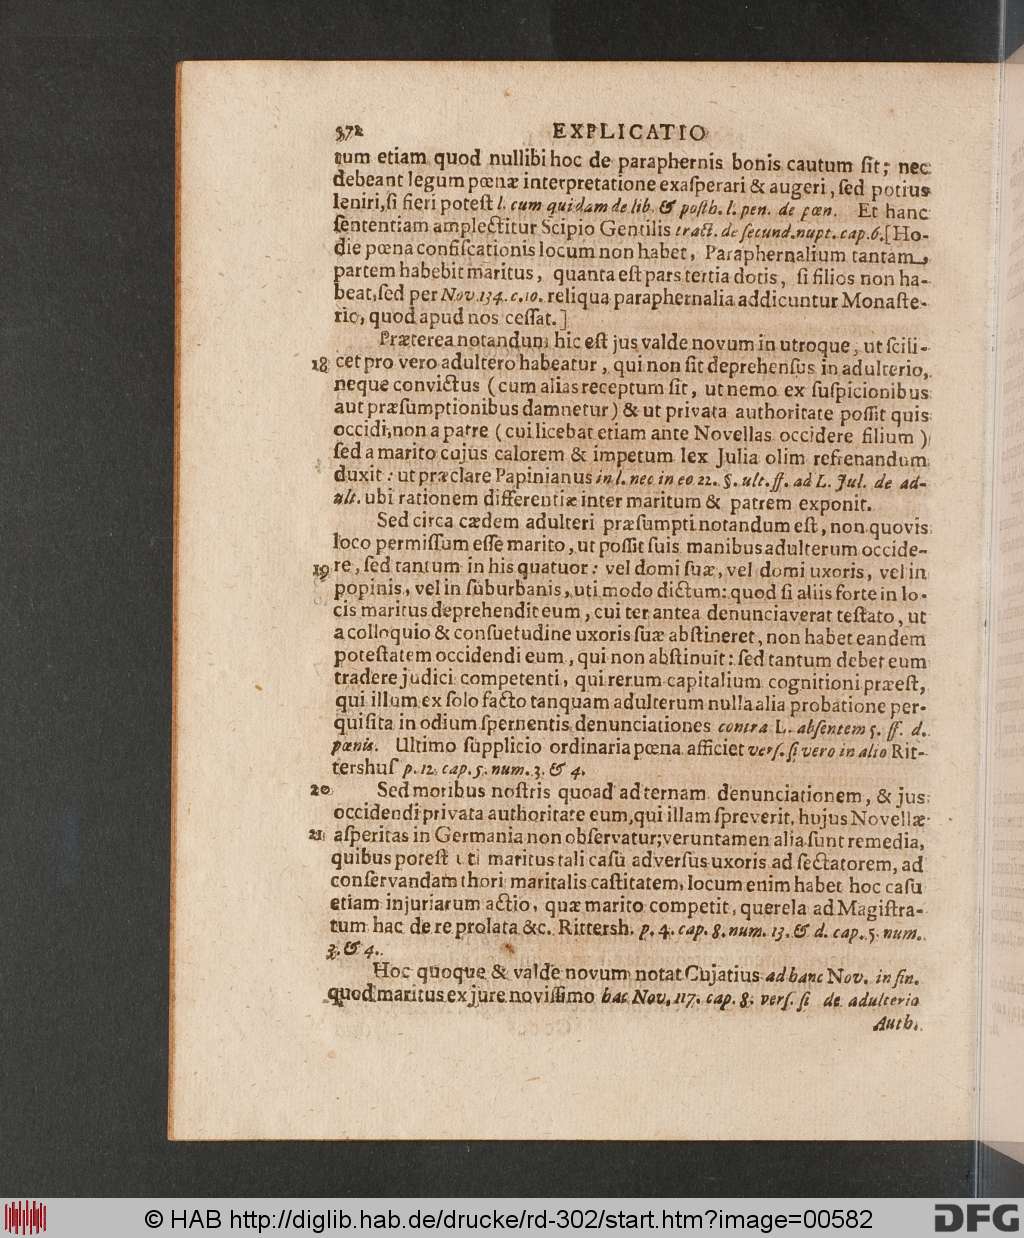 572 EXPLICATIO
tum etiam quod nullibi hoc de paraphernis bonis cautum ſit; nec
debeant legum pœnæ interpretatione exaſperari & augeri, ſed potius
leniri, ſi fieri poteſt l. cum quidam de lib. & poſth. l. pen. de pœn. Et hanc
ſententiam amplectitur Scipio Gentilis tract. de ſecund. nupt. cap. 6. [Ho-
die pœna confiſcationis locum non habet, Paraphernalium tantam,
partem habebit maritus, quanta eſt pars tertia dotis, ſi filios non ha-
beat, ſed per Nov. 134. c. 10. reliqua paraphernalia addicuntur Monaſte-
rio, quod apud nos ceſſat.]
Præterea notandum hic eſt jus valde novum in utroque, ut ſcili-
18 cet pro vero adultero habeatur, qui non ſit deprehenſus in adulterio,
neque convictus (cum alias receptum ſit, ut nemo ex ſuſpicionibus
aut præſumptionibus damnetur) & ut privata authoritate poſſit quis
occidi, non a patre (cui licebat etiam ante Novellas occidere filium)
ſed a marito cujus calorem & impetum lex Julia olim refrenandum
duxit: ut præclare Papinianus in l. nec in eo 22. §. ult. ff. ad L. Jul. de ad-
ult. ubi rationem differentiæ inter maritum & patrem exponit.
Sed circa cædem adulteri præſumpti notandum eſt, non quovis
loco permiſſum eſſe marito, ut poſſit ſuis manibus adulterum occide-
19 re, ſed tantum in his quatuor: vel domi ſuæ, vel domi uxoris, vel in
popinis, vel in ſuburbanis, uti modo dictum: quod ſi aliis forte in lo-
cis maritus deprehendit eum, cui ter antea denunciaverat teſtato, ut
a colloquio & conſuetudine uxoris ſuæ abſtineret, non habet eandem
poteſtatem occidendi eum, qui non abſtinuit: ſed tantum debet eum
tradere judici competenti, qui rerum capitalium cognitioni præeſt,
qui illum ex ſolo facto tanquam adulterum nulla alia probatione per-
quiſita in odium ſpernentis denunciationes contra L. abſentem 5. ff. d.
pœnis. Ultimo ſupplicio ordinaria pœna afficiet verſ. ſi vero in alio Rit-
tershuſ p. 12. cap. 5. num. 3. & 4.
20 Sed moribus noſtris quoad ad ternam denunciationem, & jus
occidendi privata authoritate eum, qui illam ſpreverit, hujus Novellæ
21 aſperitas in Germania non obſervatur; veruntamen alia ſunt remedia,
quibus poteſt uti maritus tali caſu adverſus uxoris adſectatorem, ad
conſervandam thori maritalis caſtitatem, locum enim habet hoc caſu
etiam injuriarum actio, quæ marito competit, querela ad Magiſtra-
tum hac de re prolata &c. Rittersh. p. 4. cap. 8. num. 13. & d. cap. 5. num.
3. & 4.
Hoc quoque & valde novum notat Cujatius ad hanc Nov. in fin.
quod maritus ex jure noviſſimo hac Nov. 117. cap. 8. verſ. ſi de adulterio
Auth.
© HAB http://diglib.hab.de/drucke/rd-302/start.htm?image=00582 DFG